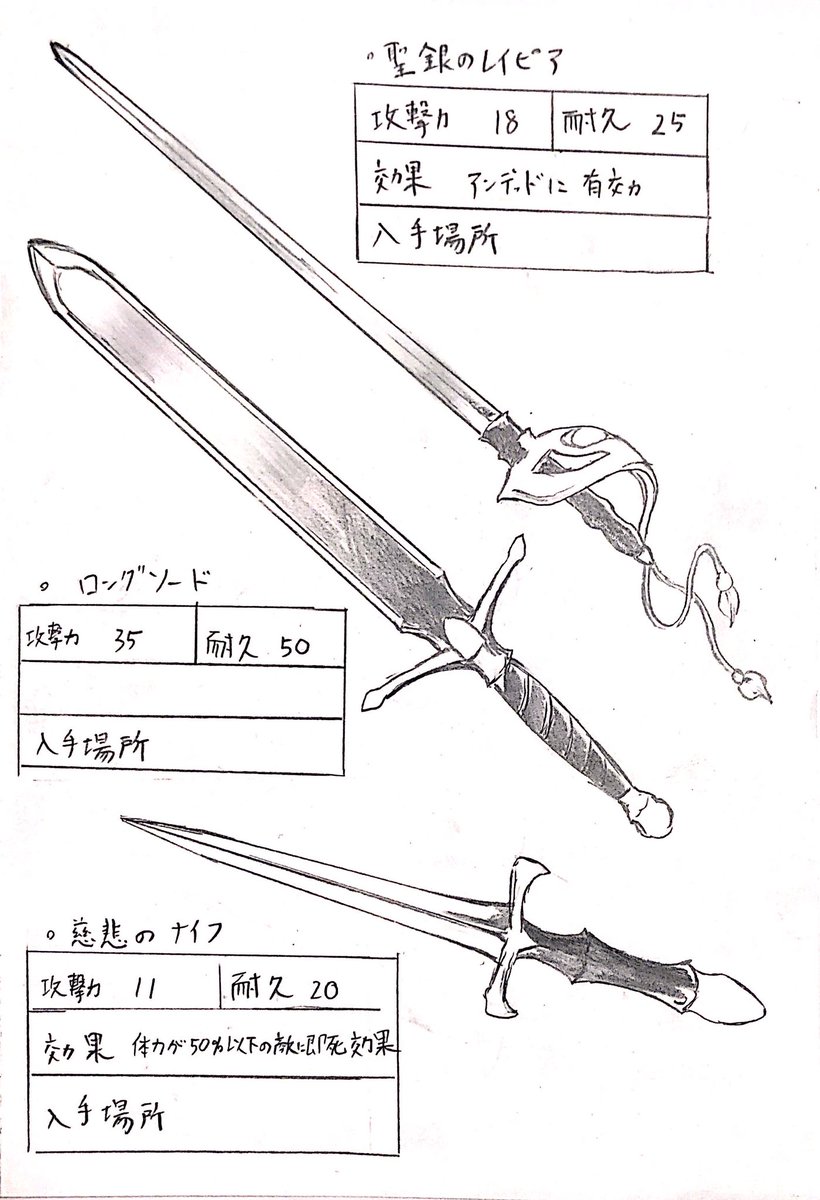 。聖銀のレイピア
攻撃力 18 耐久 25
効果 アンデッドに有効
入手場所
。ロングソード
攻撃力 35 耐久 50
入手場所
。慈悲のナイフ
攻撃力 11 耐久 20
効果 体力が50%以下の敵に即死効果
入手場所